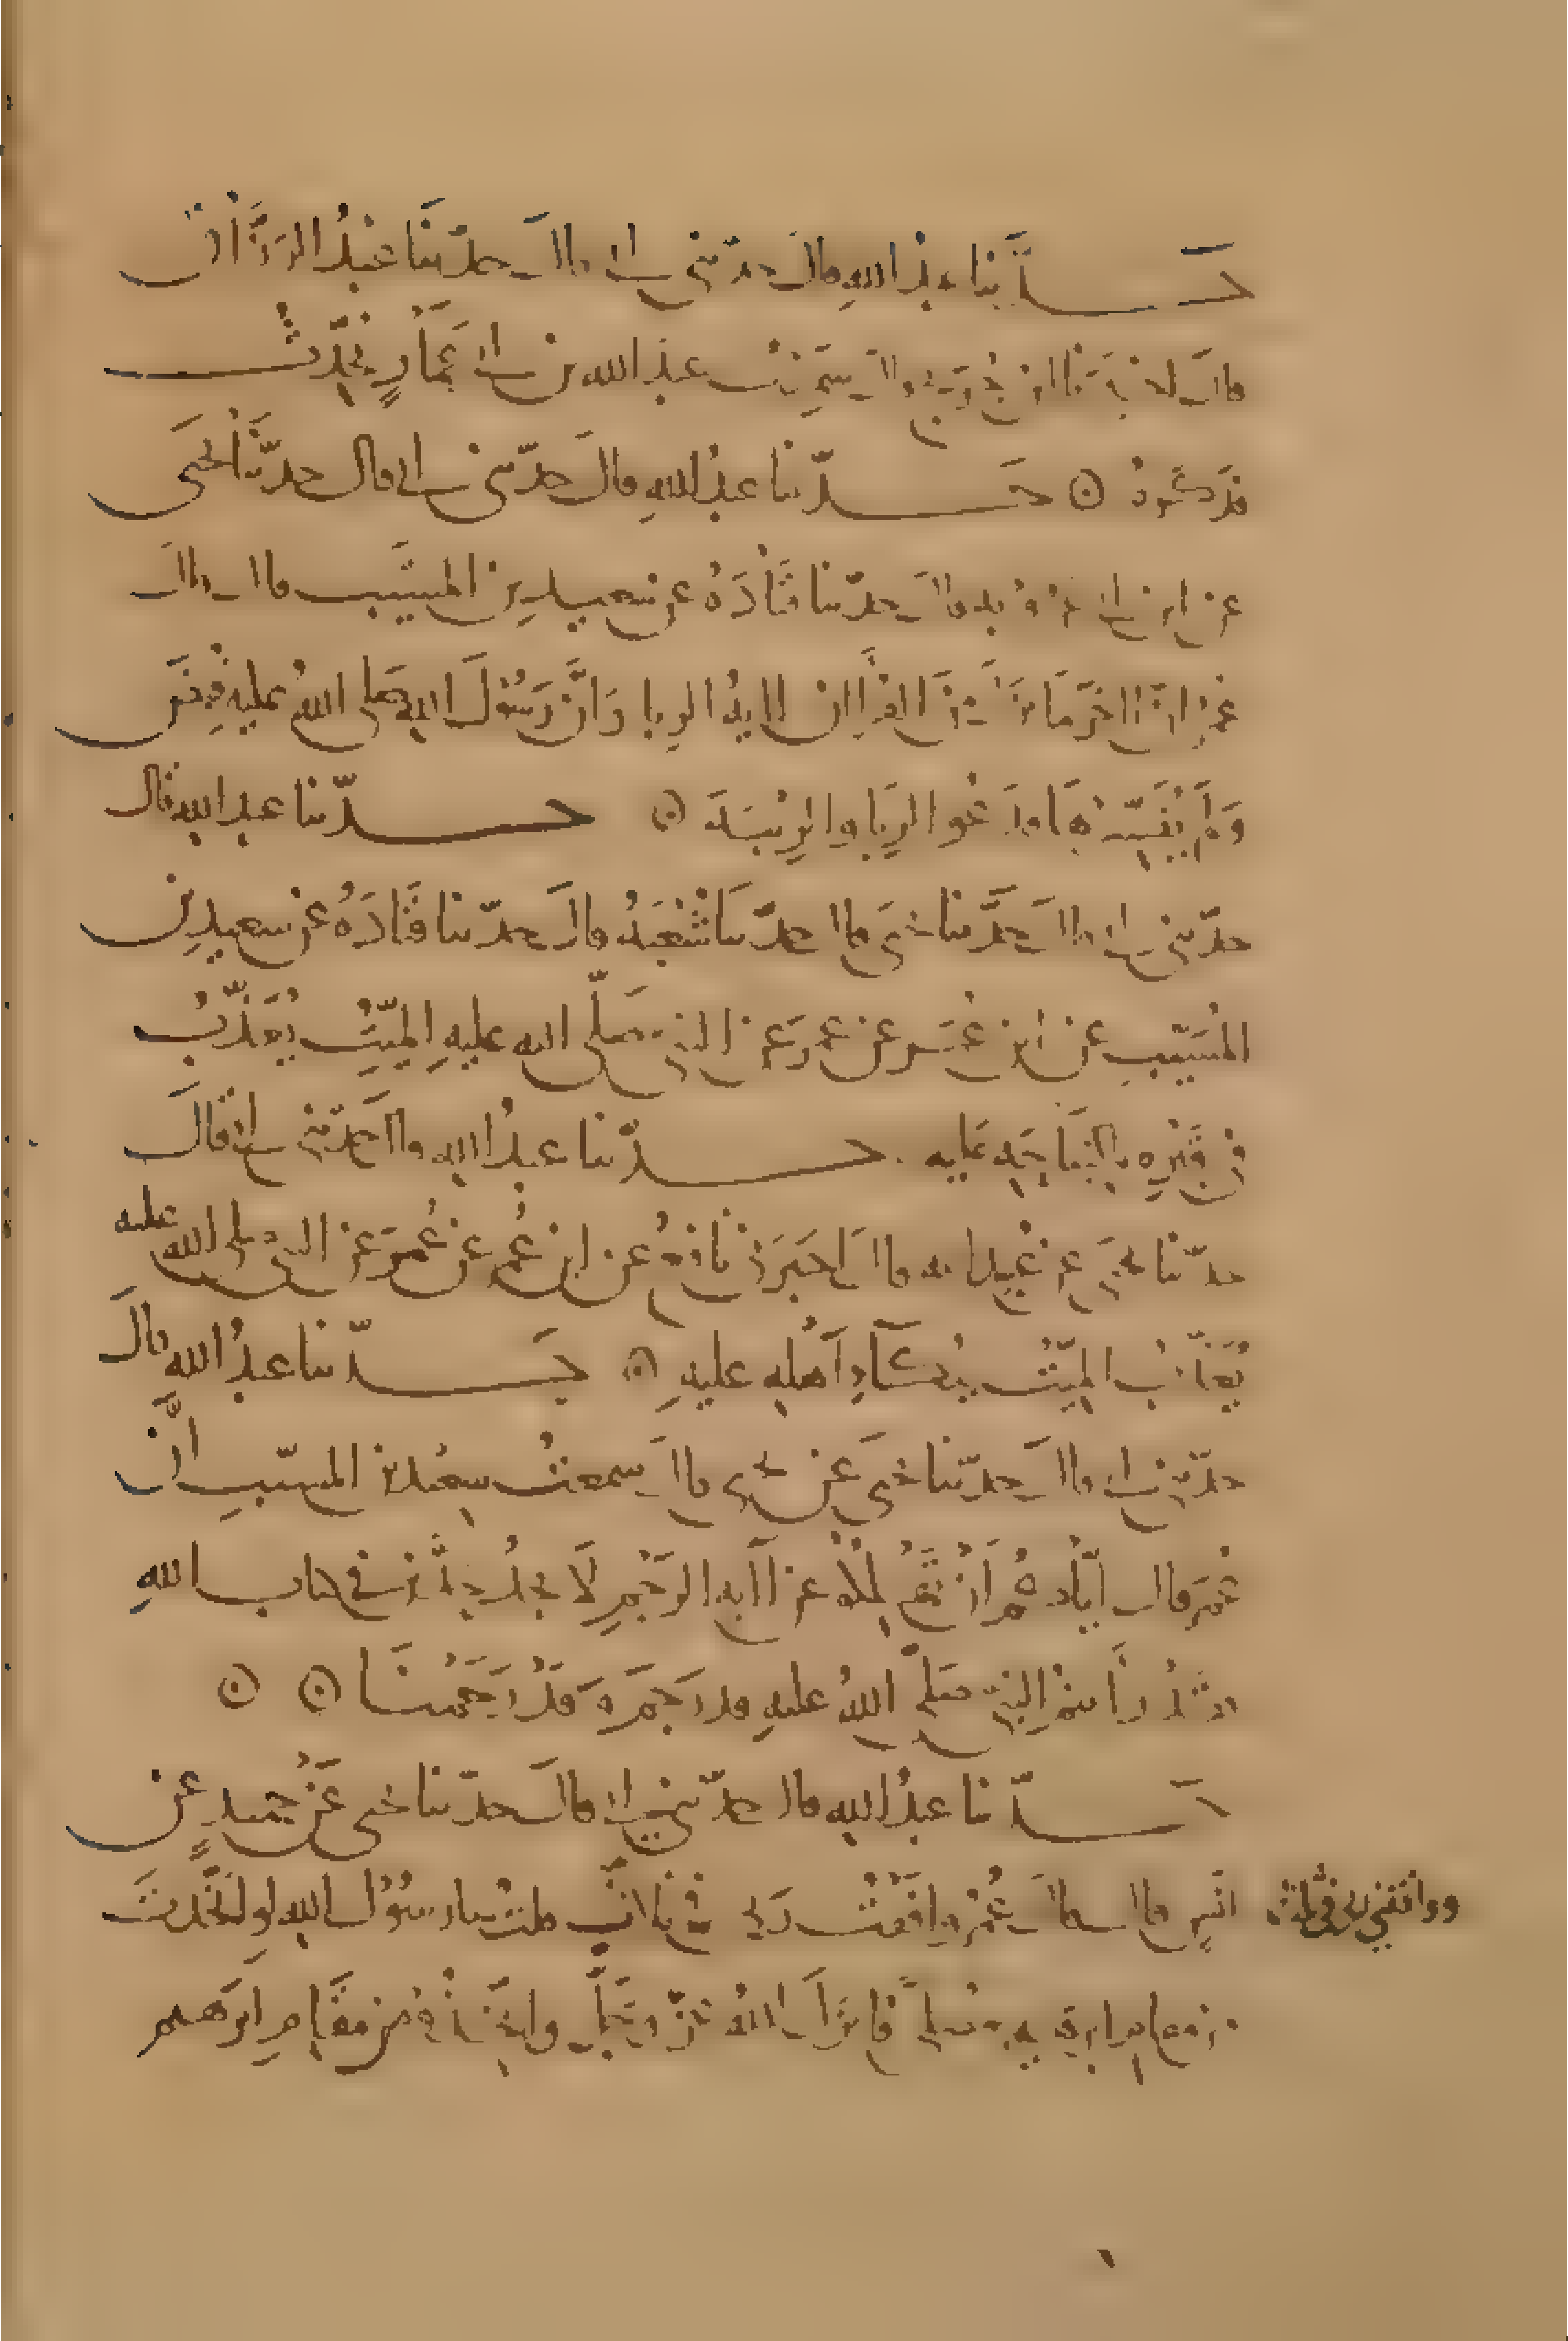 حدثنا عبد الله قال حدثني ابي قال حدثنا عبد الرزاق
قال اخبرنا ابن جريج قال سمعت عبد الله بن ابي عمار يحدث
فذكره ۞ حدثنا عبد الله قال حدثني ابي قال حدثنا يحيى
عن ابن ابي عروبه قال حدثنا قتادة عن سعيد بن المسيب قال قال
عمر ان اخر ما نزل من القرآن اية الربا وان رسول الله صلى الله عليه قبض
ولم يفسرها فدعوا الربا والريبة ۞ حدثنا عبد الله قال
حدثني ابي قال حدثنا يحيى قال حدثنا شعبة قال حدثنا قتادة عن سعيد بن
المسيب عن ابن عمر عن عمر عن النبي صلى الله عليه الميت يعذب
في قبره بالنياحة عليه . حدثنا عبد الله قال حدثني ابي قال
حدثنا يحيى عن عبيد الله قال اخبرني نافع عن ابن عمر عن عمر عن النبي صلى الله عليه
يعذب الميت ببكاء اهله عليه ۞ حدثنا عبد الله قال
حدثني ابي قال حدثنا يحيى عن يحيى قال سمعت سعيد بن المسيب ان
عمر قال اياكم ان تهلكوا عن آية الرجم لا نجد حدين في كتاب الله
فقد رأيت النبي صلى الله عليه قد رجم وقد رجمنا ۞ ۞
حدثنا عبد الله قال حدثني ابي قال حدثنا يحيى عن حميد عن
انس قال قال عمر وافقت ربي في ثلاث قلت يا رسول الله لو اتخذت
من مقام ابرهيم مصلى فانزل الله عز وجل واتخذوا من مقام ابرهيم
ووافقني ربي في ثلاث